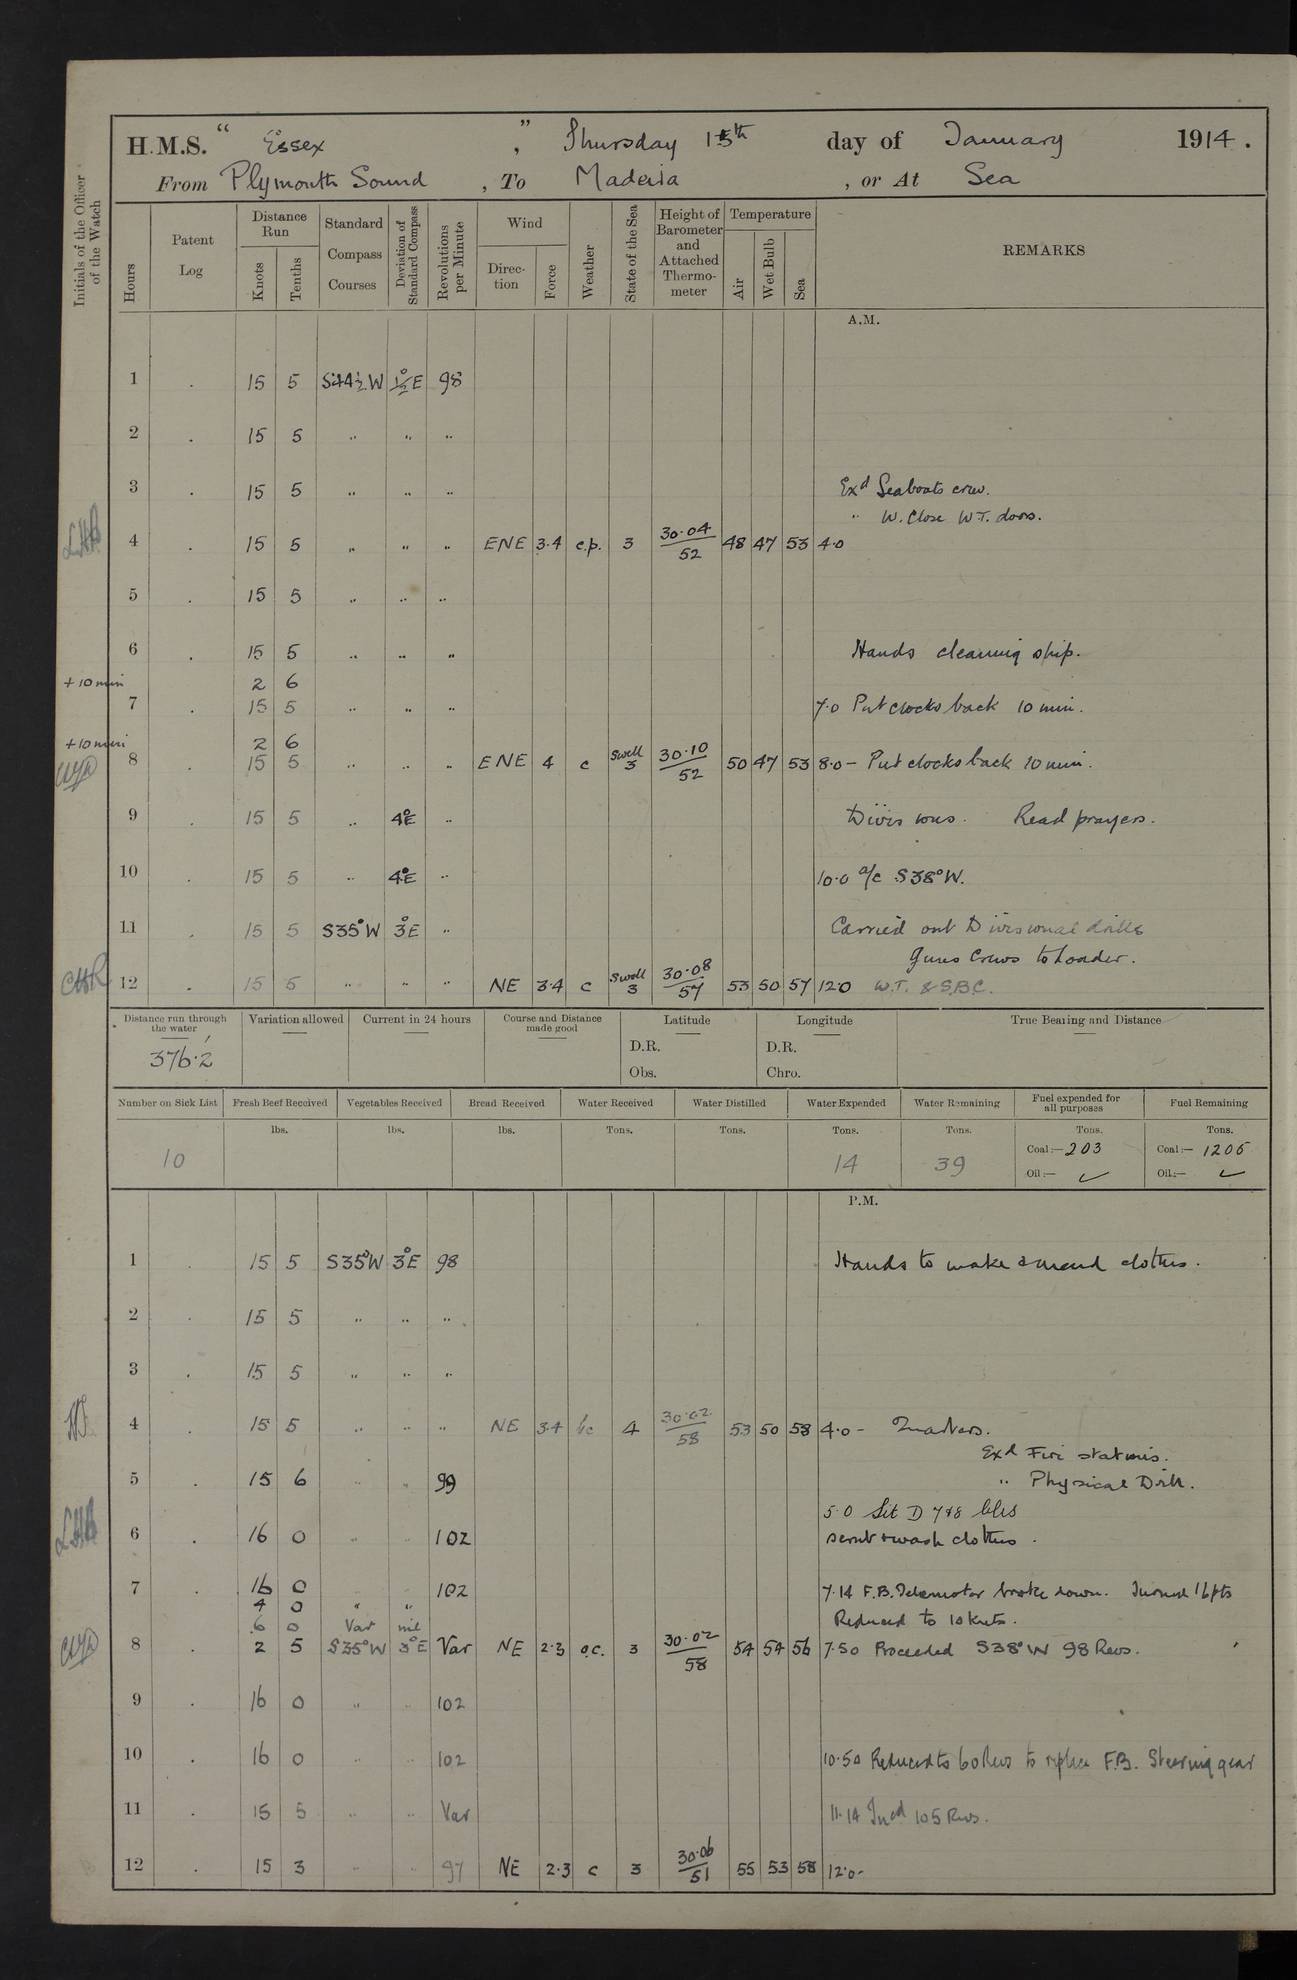 H.M.S. "Essex", Thursday 15th day of January 1914.
From Plymouth Sound, To Madeira, or At Sea
Initials of the Officer of the Watch
Hours
Patent Log
Distance Run
Knots
Tenths
Standard Compass Courses
Deviation of Standard Compass
Revolutions per Minute
Wind
Direction
Force
Weather
State of the Sea
Height of Barometer and Attached Thermometer
Temperature
Air
Wet Bulb
Sea
REMARKS
A.M.
1 . 15 5 S44½W 1½°E 98
2 . 15 5 " " "
3 . 15 5 " " " Exd Seaboats crew.
" W. Close W.T. doors.
LHB 4 . 15 5 " " " ENE 3.4 c.p. 3 30.04/52 48 47 53 4.0
5 . 15 5 " " "
6 . 15 5 " " " Hands cleaning ship.
+10 min 2 6
7 . 15 5 " " " 7.0 Put clocks back 10 min.
+10 min 2 6
8 . 15 5 " " " ENE 4 c Swell 3 30.10/52 50 47 53 8.0 – Put clocks back 10 min.
9 . 15 5 " 4°E " Divisions. Read prayers.
10 . 15 5 " 4°E " 10.0 a/c S38°W.
11 . 15 5 S35°W 3°E " Carried out Divisional drills
Guns Crews to Loader.
CHR 12 . 15 5 " " " NE 3.4 c Swell 3 30.08/57 53 50 57 12.0 W.T. & S.B.C.
Distance run through the water
376.2
Variation allowed
Current in 24 hours
Course and Distance made good
Latitude
D.R.
Obs.
Longitude
D.R.
Chro.
True Bearing and Distance
Number on Sick List
10
Fresh Beef Received
lbs.
Vegetables Received
lbs.
Bread Received
lbs.
Water Received
Tons.
Water Distilled
Tons.
Water Expended
Tons.
14
Water Remaining
Tons.
39
Fuel expended for all purposes
Tons.
Coal:—203
Oil:— ✓
Fuel Remaining
Tons.
Coal:— 1206
Oil:— ✓
P.M.
1 . 15 5 S35°W 3°E 98 Hands to make & mend clothes.
2 . 15 5 " " "
3 . 15 5 " " "
4 . 15 5 " " " NE 3.4 bc 4 30.02/58 53 50 58 4.0 – Quarters.
Exd Fire stations.
5 15 6 " " 99 " Physical Drill.
5.0 Lit D 7&8 blrs
LHB 6 . 16 0 " " 102 scrub & wash clothes.
7 . 16 0 102 7.14 F.B. Telemotor broke down. Turned 16pts
4 0 " "
6 0 Var nil Reduced to 10 knts.
8 2 5 S35°W 3°E Var NE 2.3 o.c. 3 30.02/58 54 54 56 7.50 Proceeded S38°W 98 Revs.
9 . 16 0 " " 102
10 . 16 0 " " 102 10.50 Reduced to 60 Revs to replace F.B. Steering gear
11 . 15 5 " " Var 11.14 Incd 105 Revs.
12 . 15 3 " " 97 NE 2.3 c 3 30.06/51 55 53 58 12.0 –